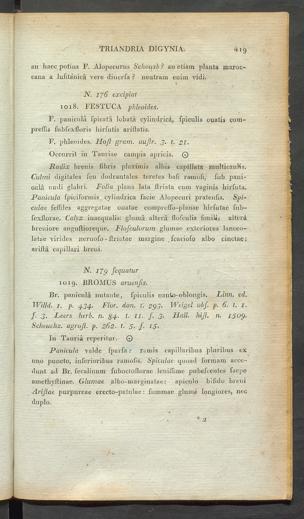 TRIANDRIA DIGYNIA. 419
an haec potius F. Alopecurus Schousb? an etiam planta maroc-
cana a lusitanica vere diuersa? neutram enim vidi.
N. 176 excipiat
1018. FESTUCA phleoides.
F. paniculâ spicatâ lobatâ cylindricâ, spiculis ouatis com-
pressis subsexfloris hirsutis aristatis.
F. phleoides. Host gram. austr. 3. t. 21.
Occurrit in Tauriae campis apricis. ☉
Radix brevis fibris plurimis albis capillata multicaulis.
Culmi digitales seu dodrantales teretes basi ramosi, sub pani-
culâ nudi glabri. Folia plana lata striata cum vaginis hirsuta.
Panicula spiciformis cylindrica facie Alopecuri pratensis. Spi-
culae sessiles aggregatae ouatae compresso-planae hirsutae sub-
sexflorae. Calyx inaequalis: glumâ alterâ flosculis simili, alterâ
breuiore angustioreque. Flosculorum glumae exteriores lanceo-
latae virides neruoso-striatae margine scarioso albo cinctae;
aristâ capillari breui.
N. 179 sequatur
1019. BROMUS aruensis.
Br. paniculâ nutante, spiculis ouato-oblongis. Linn. ed.
Willd. 1. p. 434. Flor. dan. t. 293. Weigel obs. p. 6. t. 1.
f. 3. Leers herb. n. 84. t. 11. f. 3. Hall. hist. n. 1509.
Scheuchz. agrost. p. 262. t. 5. f. 15.
In Tauriâ reperitur. ☉
Panicula valde sparsa: ramis capillaribus pluribus ex
uno puncto, inferioribus ramosis. Spiculae quoad formam acce-
dunt ad Br. secalinum suboctoflorae leuissime pubescentes saepe
amethystinae. Glumae albo-marginatae: apiculo bifido breui
Aristae purpureae erecto-patulae: summae glumâ longiores, nec
duplo.
* 2